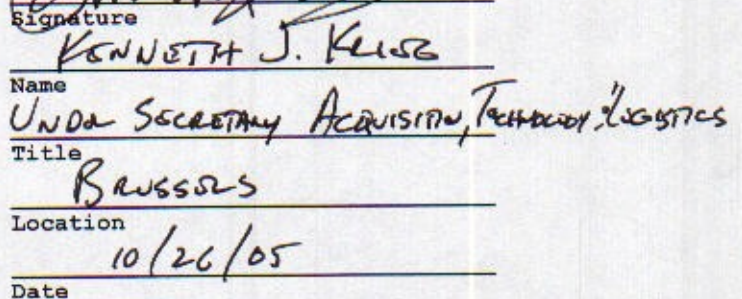 Signature
KENNETH J. KRIEG
Name
UNDER SECRETARY ACQUISITION, TECHNOLOGY, & LOGISTICS
Title
BRUSSELS
Location
10/26/05
Date